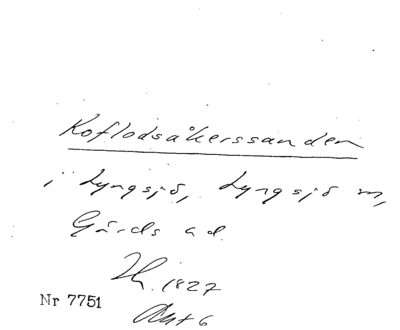 Koflodsåkerssanden
i Lyngsjö, Lyngsjö sn,
Gärds hd.
1827
Nr 7751
Akt 6